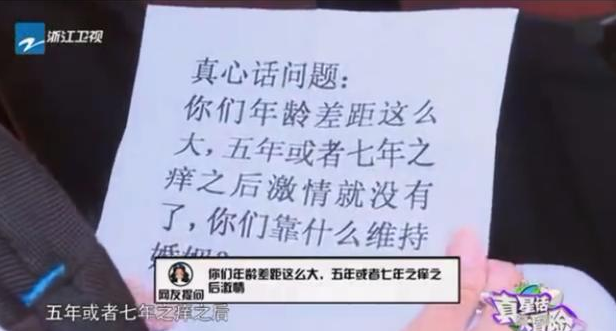 浙江卫视
真心话问题:
你们年龄差距这么
大,五年或者七年之
痒之后激情就没有
了,你们靠什么维持
网友提问
你们年龄差距这么大，五年或者七年之痒之
后激情
五年或者七年之痒之后
真星话